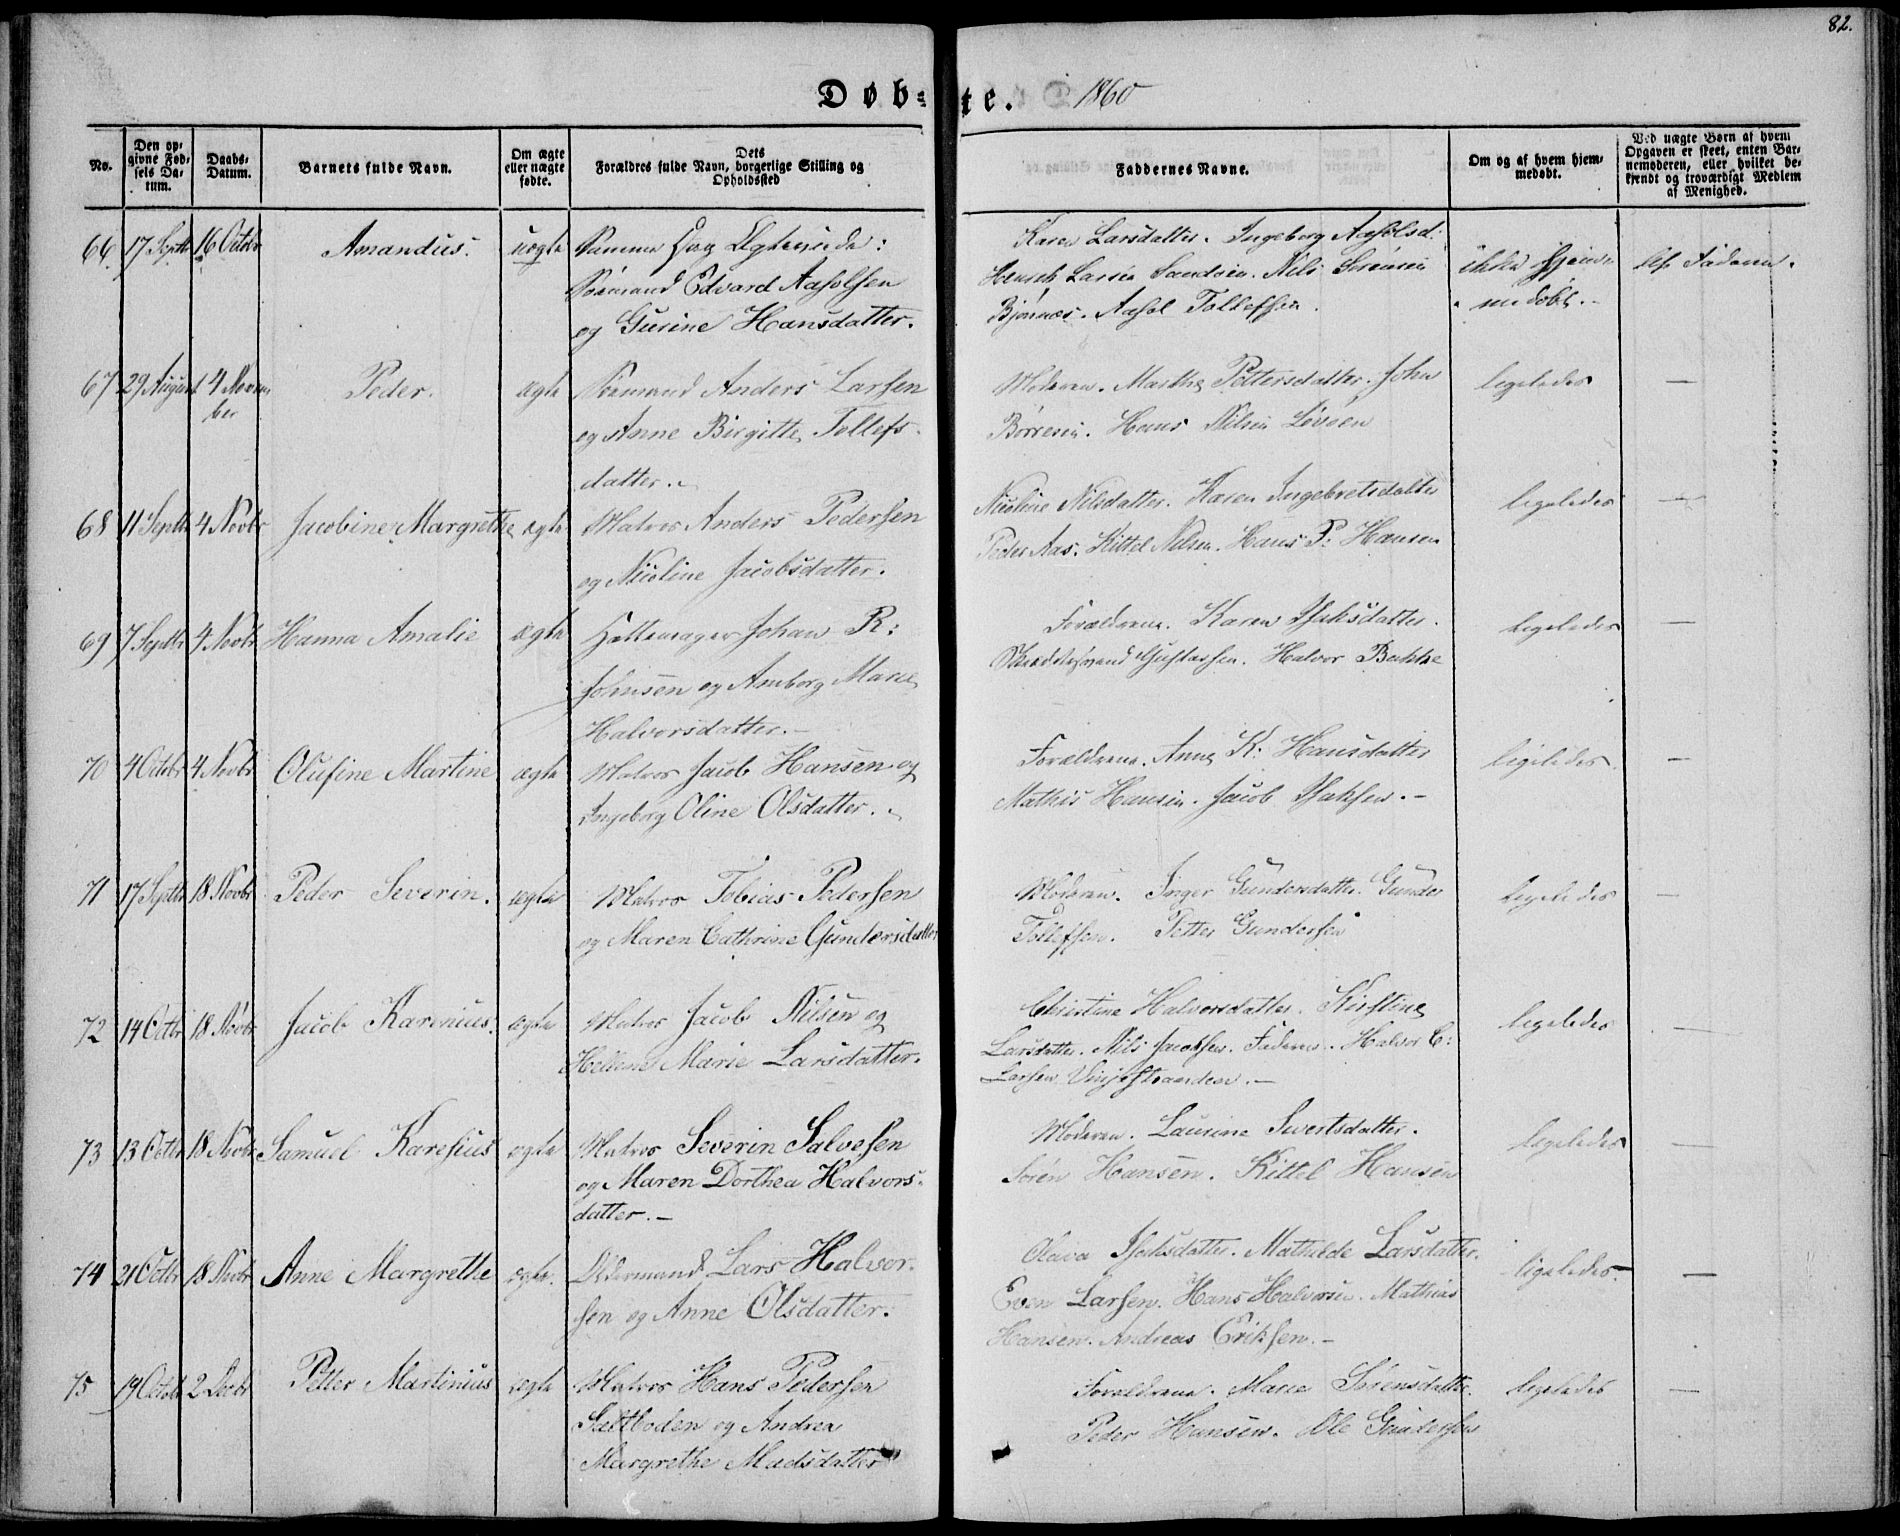 82.
Døb-te. 1860
No.
Den opgivne Fødsels Datum.
Daabs-Datum.
Barnets fulde Navn.
Om ægte eller uægte fødte.
Dets Forældres fulde Navn, borgerlige Stilling og Opholdssted
Faddernes Navne.
Om og af hvem hjemmedøbt.
Ved uægte Børn af hvem Opgaven er skeet, enten Barnemoderen, eller hvilket bekjendt og troværdigt Medlem af Menighed.
66. 17 Septbr 16 Octobr Amandus. uægte
Sømand Edvard Aasolsen
og Gurine Hansdatter.
Karen Larsdatter. Ingeborg Aasolsd:
Henrik Larsen Sandøen. Nils Sørensen
Bjønnes. Aasol Tollefsen.
ikke hjem-
medøbt.-
Af Faderen.
67 29 August 4 Novem
ber
Peder. ægte
Sømand Anders Larsen
og Anne Birgitte Tollefs-
datter.
Moderen. Marthe Pettersdatter. John
Børresen. Hans Nilsen Løvøen
ligeledes —
68 11 Septbr 4 Novbr Jacobine Margrethe ægte
Matros Anders Pedersen
og Nicoline Jacobsdatter.
Nicoline Nilsdatter. Karen Ingebretsdatter
Peder Aas. Kittel Nilsen. Hans P: Hansen
ligeledes —
69 7 Septbr 4 Novbr Hanna Amalie ægte
Hattemager Johan R:
Johnsen og Amborg Marie
Halvorsdatter.-
Forældrene. Karen Isaksdatter.
Gustavsen. Halvor Bakke
ligeledes —
70 4 Octobr 4 Novbr Olufine Martine ægte
Matros Jacob Hansen og
Ingeborg Oline Olsdatter.
Forældrene. Anne K: Hansdatter
Mathis Hansen. Jacob Isaksen.-
ligeledes. —
71 17 Septbr 18 Novbr Peder Severin. ægte
Matros Tobias Pedersen
og Maren Cathrine Gundersdatter
Moderen. Inger Gundersdatter. Gunder
Tollefsen. Petter Gundersen
ligeledes —
72 14 Octbr 18 Novbr Jacob Karenius. ægte
Matros Jacob Nilsen og
Hellene Marie Larsdatter.
Christine Halvorsdatter. Kirstine
Larsdatter. Nils Jacobsen. Faderen. Halvor C:
Larsen Vinjestranden.-
ligeledes —
73 13 Octbr 18 Novbr Samuel Karesius ægte
Matros Severin Salvesen
og Maren Dorthea Halvors-
datter.-
Moderen. Laurine Sivertsdatter.
Søren Hansen. Kittel Hansen
ligeledes —
74 21 Octbr 18 Novbr Anne Margrethe ægte.
Oldermand Lars Halvor-
sen og Anne Olsdatter.
Olava Isaksdatter. Mathilde Larsdatter.
Even Larsen. Hans Halvorsen. Mathias
Hansen. Andreas Eriksen.-
ligeledes. —
75 19 Octobr 2 Decbr Petter Martinius ægte
Matros Hans Pedersen
Saltboden og Andrea
Margrethe Madsdatter
Forældrene. Marie Sørensdatter.
Peder Hansen. Ole Gundersen
ligeledes —